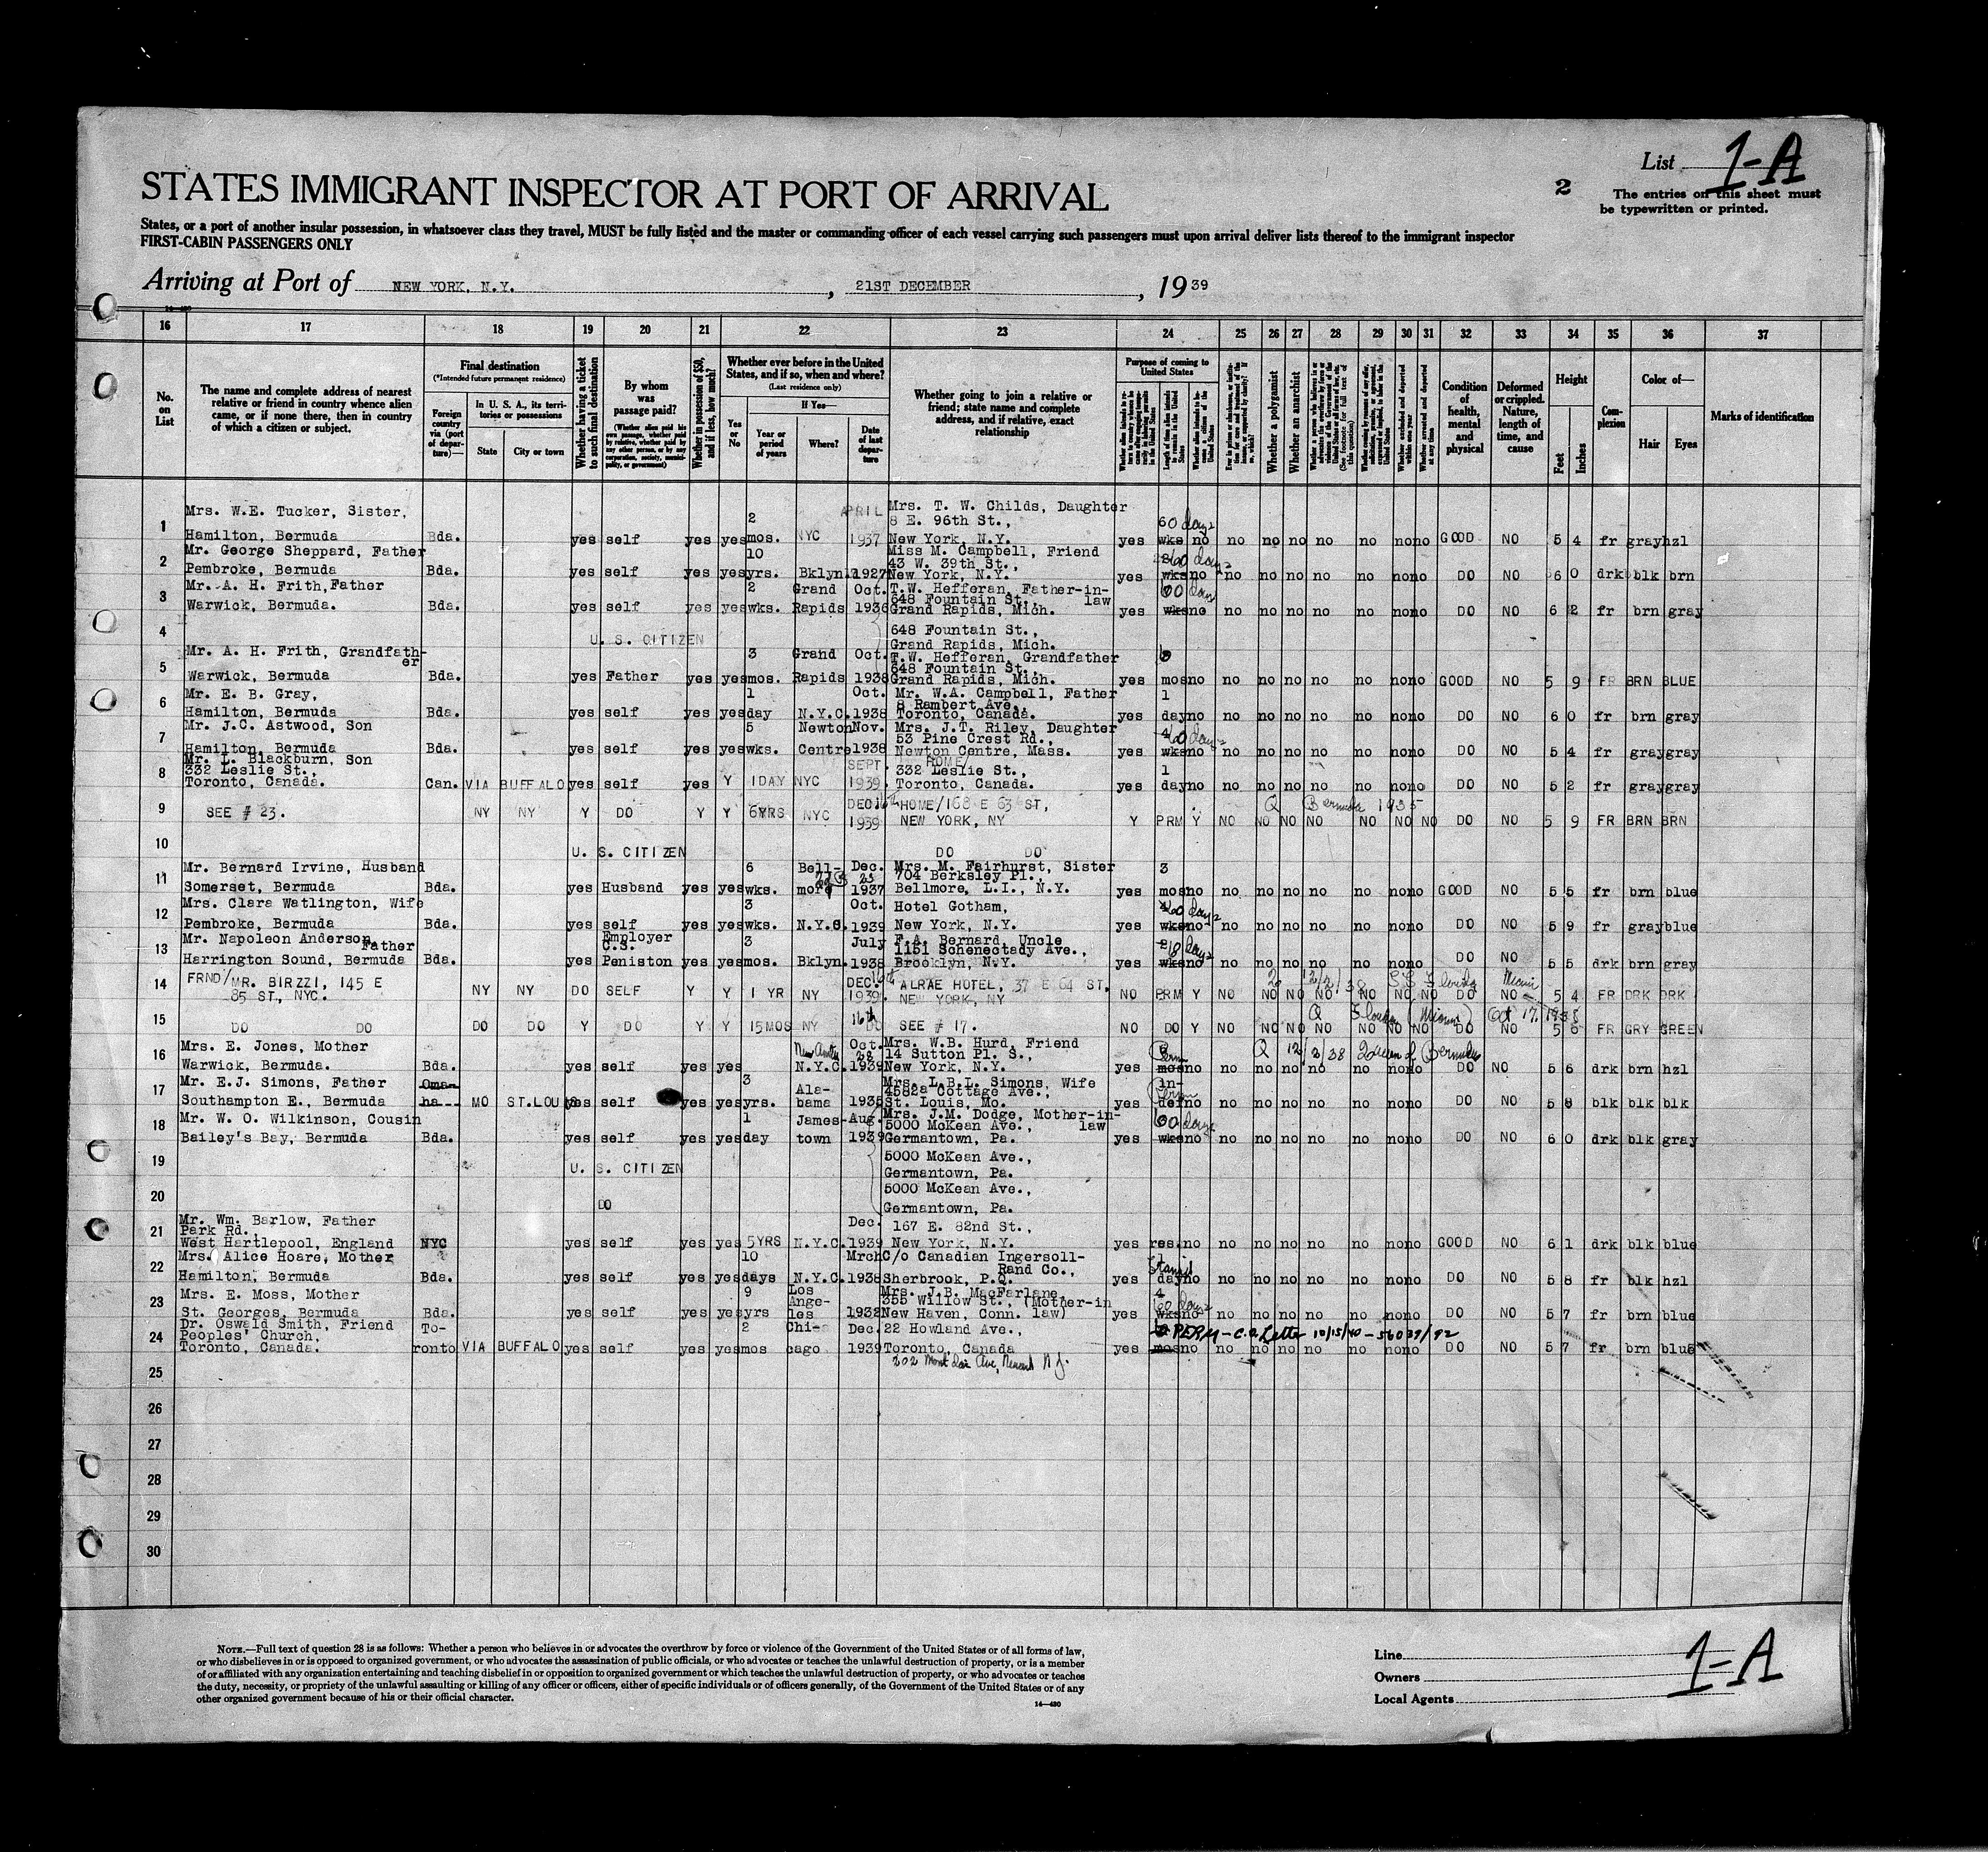 List 1-A
STATES IMMIGRANT INSPECTOR AT PORT OF ARRIVAL
2
The entries on this sheet must
be typewritten or printed.
States, or a port of another insular possession, in whatsoever class they travel, MUST be fully listed and the master or commanding officer of each vessel carrying such passengers must upon arrival deliver lists thereof to the immigrant inspector
FIRST-CABIN PASSENGERS ONLY
Arriving at Port of NEW YORK, N.Y. , 21ST DECEMBER , 1939
16 17 18 19 20 21 22 23 24 25 26 27 28 29 30 31 32 33 34 35 36 37
No. on List
The name and complete address of nearest relative or friend in country whence alien came, or if none there, then in country of which a citizen or subject.
Final destination
(*Intended future permanent residence)
Foreign country via (port of departure)—
In U. S. A., its territories or possessions
State
City or town
Whether having a ticket to such final destination
By whom was passage paid?
(Whether alien paid his own passage, whether paid by relative, whether paid by any other person, or by any corporation, society, municipality, or government)
Whether in possession of $50, and if less, how much?
Whether ever before in the United States, and if so, when and where?
(Last residence only)
Yes or No
If Yes—
Year or period of years
Where?
Date of last departure
Whether going to join a relative or friend; state name and complete address, and if relative, exact relationship
Purpose of coming to United States
Whether a polygamist
Whether an anarchist
Condition of health, mental and physical
Deformed or crippled. Nature, length of time, and cause
Height
Feet
Inches
Complexion
Color of—
Hair
Eyes
Marks of identification
1 Mrs. W.E. Tucker, Sister, Hamilton, Bermuda Bda. yes self yes yes 2 mos. NYC APRIL 1937 Mrs. T. W. Childs, Daughter 8 E. 96th St., New York, N.Y. yes 60 days wks no no no no no no nono GOOD NO 5 4 fr gray hzl
2 Mr. George Sheppard, Father Pembroke, Bermuda Bda. yes self yes yes 10 yrs. Bklyn 1927 Miss M. Campbell, Friend 43 W. 39th St., New York, N.Y. yes 60 days wks no no no no no no nono DO NO 6 0 drk blk brn
3 Mr. A. H. Frith, Father Warwick, Bermuda. Bda. yes self yes yes 2 wks. Grand Rapids Oct. 1936 T.W. Hefferan, Father-in-law 648 Fountain St., Grand Rapids, Mich. yes 60 days wks no no no no no no nono DO NO 6 2 fr brn gray
4 U. S. CITIZEN 648 Fountain St., Grand Rapids, Mich.
5 Mr. A. H. Frith, Grandfather Warwick, Bermuda Bda. yes Father yes yes 3 mos. Grand Rapids Oct. 1938 T.W. Hefferan, Grandfather 648 Fountain St., Grand Rapids, Mich. yes mos no no no no no no nono GOOD NO 5 9 FR BRN BLUE
6 Mr. E. B. Gray, Hamilton, Bermuda Bda. yes self yes yes 1 day N.Y.C. Oct. 1938 Mr. W.A. Campbell, Father 8 Rambert Ave., Toronto, Canada. yes 1 day no no no no no no nono DO NO 6 0 fr brn gray
7 Mr. J.C. Astwood, Son Hamilton, Bermuda Bda. yes self yes yes 5 wks. Newton Centre Nov. 1938 Mrs. J.T. Riley, Daughter 53 Pine Crest Rd., Newton Centre, Mass. yes 60 days wks no no no no no no nono DO NO 5 4 fr gray gray
8 Mr. L. Blackburn, Son 332 Leslie St., Toronto, Canada. Can. VIA BUFFALO yes self yes Y 1DAY NYC SEPT. 1939 HOME/ 332 Leslie St., Toronto, Canada. yes 1 day no no no no no no nono DO NO 5 2 fr gray gray
9 SEE # 23. NY NY Y DO Y Y 6YRS NYC DEC 16th 1939 HOME/168 E 63 ST, NEW YORK, NY Q Bermuda 1935 Y PRM Y NO NO NO NO NO NO NO DO NO 5 9 FR BRN BRN
10 U. S. CITIZEN DO DO
11 Mr. Bernard Irvine, Husband Somerset, Bermuda Bda. yes Husband yes yes 6 wks. Bellmore Dec. 23 1937 Mrs. M. Fairhurst, Sister 704 Berksley Pl., Bellmore, L.I., N.Y. yes 3 mos no no no no no no nono GOOD NO 5 5 fr brn blue
12 Mrs. Clara Watlington, Wife Pembroke, Bermuda Bda. yes self yes yes 3 wks. N.Y.C. Oct. 1939 Hotel Gotham, New York, N.Y. yes 60 days wks no no no no no no nono DO NO 5 9 fr gray blue
13 Mr. Napoleon Anderson, Father Harrington Sound, Bermuda Bda. yes Employer C.S. Peniston yes yes 3 mos. Bklyn. July 1938 F.A. Bernard, Uncle 1151 Schenectady Ave., Brooklyn, N.Y. yes days wks no no no no no no nono DO NO 5 5 drk brn gray
14 FRND/MR. BIRZZI, 145 E 85 ST, NYC. NY NY DO SELF Y Y 1 YR NY DEC. 16th 1939 ALRAE HOTEL, 37 E 64 ST, NEW YORK, NY Q 12/2/38 SS Florida Miami NO PRM Y NO NO NO NO NO NO NO DO NO 5 4 FR DRK DRK
15 DO DO DO DO Y DO Y Y 15MOS NY 16th DO SEE # 17. Q Florida (Miami) Oct 17, 1938 NO DO Y NO NO NO NO NO NO NO DO NO 5 6 FR GRY GREEN
16 Mrs. E. Jones, Mother Warwick, Bermuda. Bda. yes self yes yes N.Y.C. Oct. 28 1939 Mrs. W.B. Hurd, Friend 14 Sutton Pl. S., New York, N.Y. Q 12/2/38 Queen of Bermuda yes Perm mos no no no no no no nono DO NO 5 6 drk brn hzl
17 Mr. E.J. Simons, Father Southampton E., Bermuda Omaha MO ST.LOUIS yes self yes yes 3 yrs. Alabama 1935 Mrs. L.B.L. Simons, Wife 4582a Cottage Ave., St. Louis, Mo. yes in- Perm def no no no no no no nono DO NO 5 8 blk blk blk
18 Mr. W. O. Wilkinson, Cousin Bailey's Bay, Bermuda Bda. yes self yes yes 1 day Jamestown Aug. 1939 Mrs. J.M. Dodge, Mother-in-law 5000 McKean Ave., Germantown, Pa. yes 60 days wks no no no no no no nono DO NO 6 0 drk blk gray
19 U. S. CITIZEN 5000 McKean Ave., Germantown, Pa.
20 DO 5000 McKean Ave., Germantown, Pa.
21 Mr. Wm. Barlow, Father Park Rd., West Hartlepool, England NYC yes self yes yes 5YRS N.Y.C. Dec. 1939 167 E. 82nd St., New York, N.Y. yes res. no no no no no no nono GOOD NO 6 1 drk blk blue
22 Mrs. Alice Hoare, Mother Hamilton, Bermuda Bda. yes self yes yes 10 days N.Y.C. Mrch 1938 C/o Canadian Ingersoll-Rand Co., Sherbrook, P.Q. yes 1 Transit day no no no no no no nono DO NO 5 8 fr blk hzl
23 Mrs. E. Moss, Mother St. Georges, Bermuda Bda. yes self yes yes 9 yrs Los Angeles 1932 Mrs. J.B. MacFarlane, 355 Willow St., (Mother-in law) New Haven, Conn. yes 4 60 days wks no no no no no no nono DO NO 5 7 fr brn blue
24 Dr. Oswald Smith, Friend Peoples' Church, Toronto, Canada. Toronto VIA BUFFALO yes self yes yes 2 mos Chicago Dec. 1939 22 Howland Ave., Toronto, Canada PERM - C.O. Letter 10/15/40 - 56039/92 yes mos no no no no no no nono DO NO 5 7 fr brn blue
Ave, Newark N.J.
25
26
27
28
29
30
NOTE.—Full text of question 28 is as follows: Whether a person who believes in or advocates the overthrow by force or violence of the Government of the United States or of all forms of law,
or who disbelieves in or is opposed to organized government, or who advocates the assassination of public officials, or who advocates or teaches the unlawful destruction of property, or is a member
of or affiliated with any organization entertaining and teaching disbelief in or opposition to organized government or which teaches the unlawful destruction of property, or who advocates or teaches
the duty, necessity, or propriety of the unlawful assaulting or killing of any officer or officers, either of specific individuals or of officers generally, of the Government of the United States or of any
other organized government because of his or their official character.
14—430
Line
Owners
Local Agents
1-A